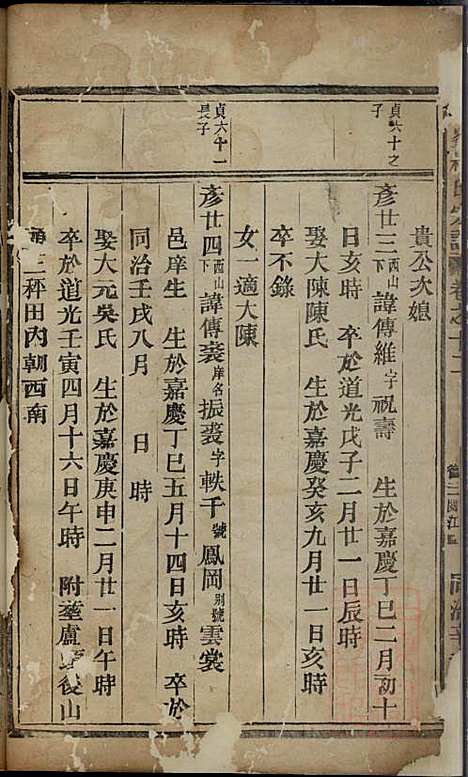 貞六十之
子
貞六十一
長子
貴公次娘
彥廿三西山下諱傳維字祝壽 生於嘉慶丁巳二月初十
日亥時 卒於道光戊子二月廿一日辰時
娶大陳陳氏 生於嘉慶癸亥九月廿一日亥時
卒不錄
女一適大陳
彥廿四西山下諱傳裘庠名振裘字軼千號鳳岡別號雲裳
邑庠生 生於嘉慶丁巳五月十四日亥時 卒於
同治壬戌八月 日 時
娶大元吳氏 生於嘉慶庚申二月廿一日午時
卒於道光壬寅四月十六日午時 附塟盧後山
秤田內朝西南